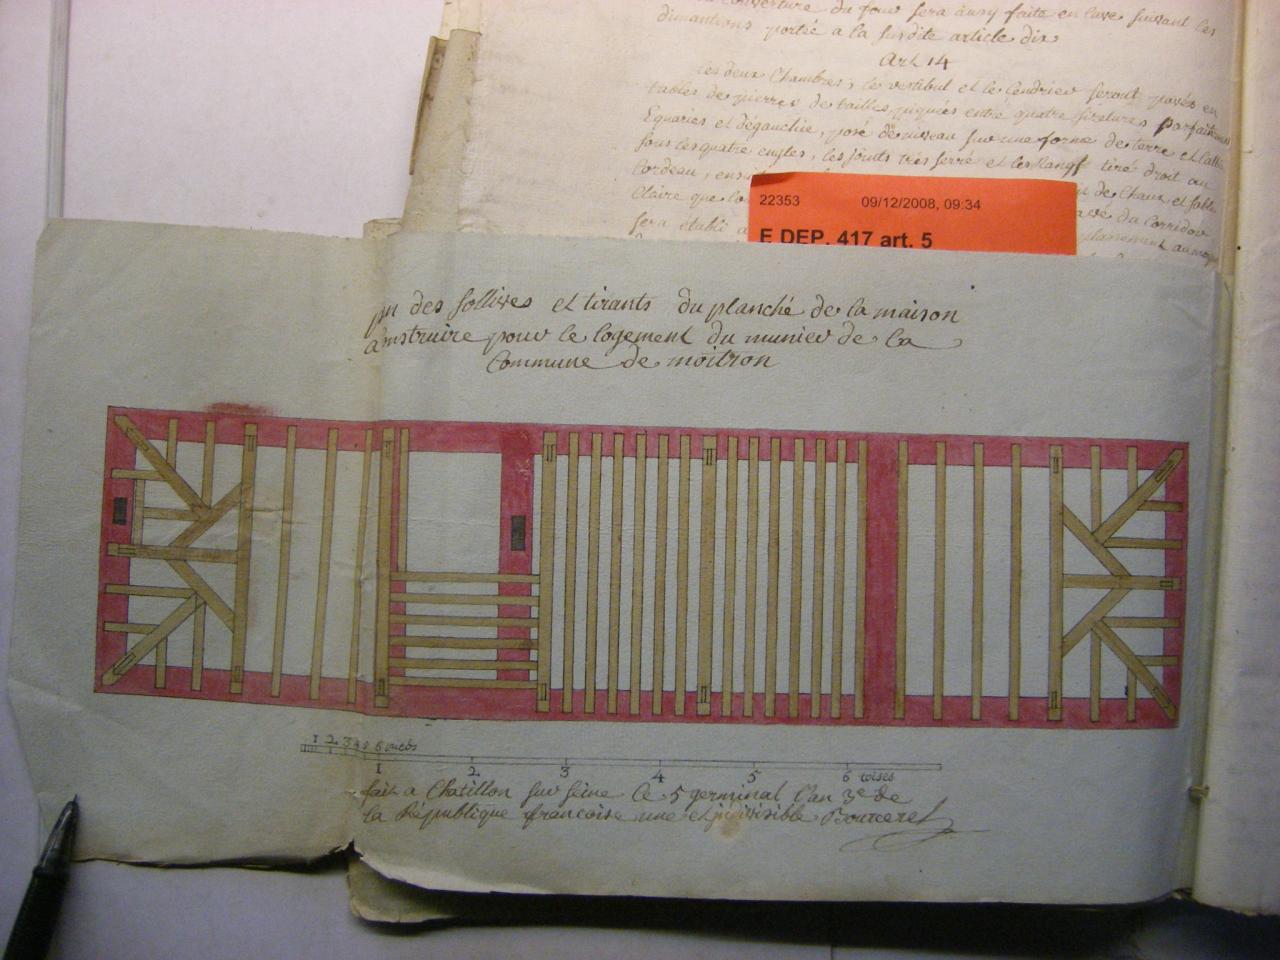 couverture du four sera ausy faite en lave suivant les
dimantions portée a la susdite article dix
Art 14
Les deux Chambres, le vestibul et le Cendrier seront pavés en
tables de pierres de tailles piquées entre quatre siselures parfaitement
Equaries et dégauchie, posé de niveau sur une forme de terre et
sous les quatre engles, les joints très serré et les Rangs tiré droit au
Cordeau, de Chaux et sable
Claire que la pavé du Corridor
sera établi a
22353 09/12/2008, 09:34
E DEP. 417 art. 5
des sollives et tirants du planché de la maison
a construire pour le logement du munier de la
Commune de moitron
1 2 3 4 5 6 pieds
1 2 3 4 5 6 toises
fait a Chatillon sur seine Ce 5 germinal l'an 3e de
la République francoise une et indivisible Bourceret